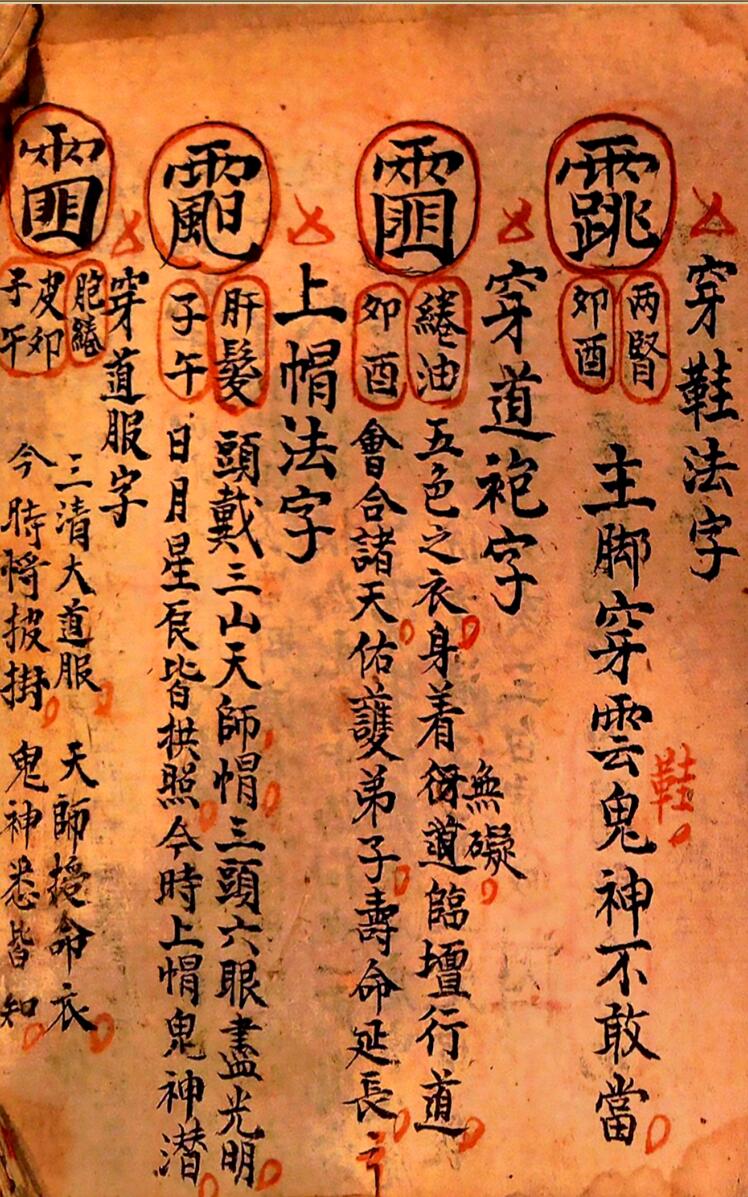 穿鞋法字
两腎
卯酉
主脚穿雲鬼神不敢當
鞋
穿道袍字
綣油
卯酉
五色之衣身着衍道臨壇行道
無礙
會合諸天佑護弟子壽命延長
上帽法字
肝髮
子午
頭戴三山天師帽三頭六眼盡光明
日月星辰皆拱照今時上帽鬼神潜
穿道服字
胞綣
皮卯
子午
三清大道服 天師授命衣
今時披掛 鬼神悉皆知